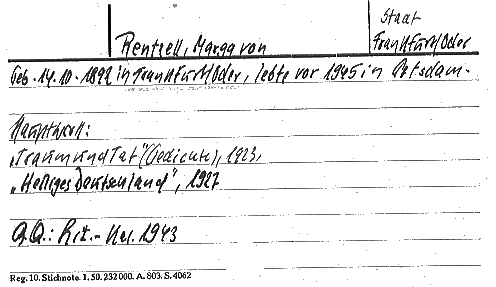 Staat
Frankfurt/Oder
Rentzell, Marga von
Geb. 14.10.1892 in Frankfurt/Oder, lebte vor 1945 in Potsdam.
Hauptwerk:
„Traum und Tat" (Gedichte), 1923,
„Heiliges Deutschland", 1927
Q.Q.: Kür.-Kal. 1943
Reg. 10. Stichnote. 1. 50. 232 000. A. 803. S. 4062